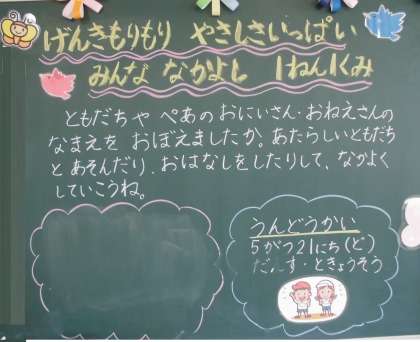 げんきもりもり やさしさいっぱい
みんな なかよし 1ねん1くみ
ともだちや ぺあの おにいさん・おねえさんの
なまえを おぼえましたか。あたらしいともだち
と あそんだり、おはなしをしたりして、なかよく
していこうね。
うんどうかい
5がつ21にち(ど)
だんす・ときょうそう